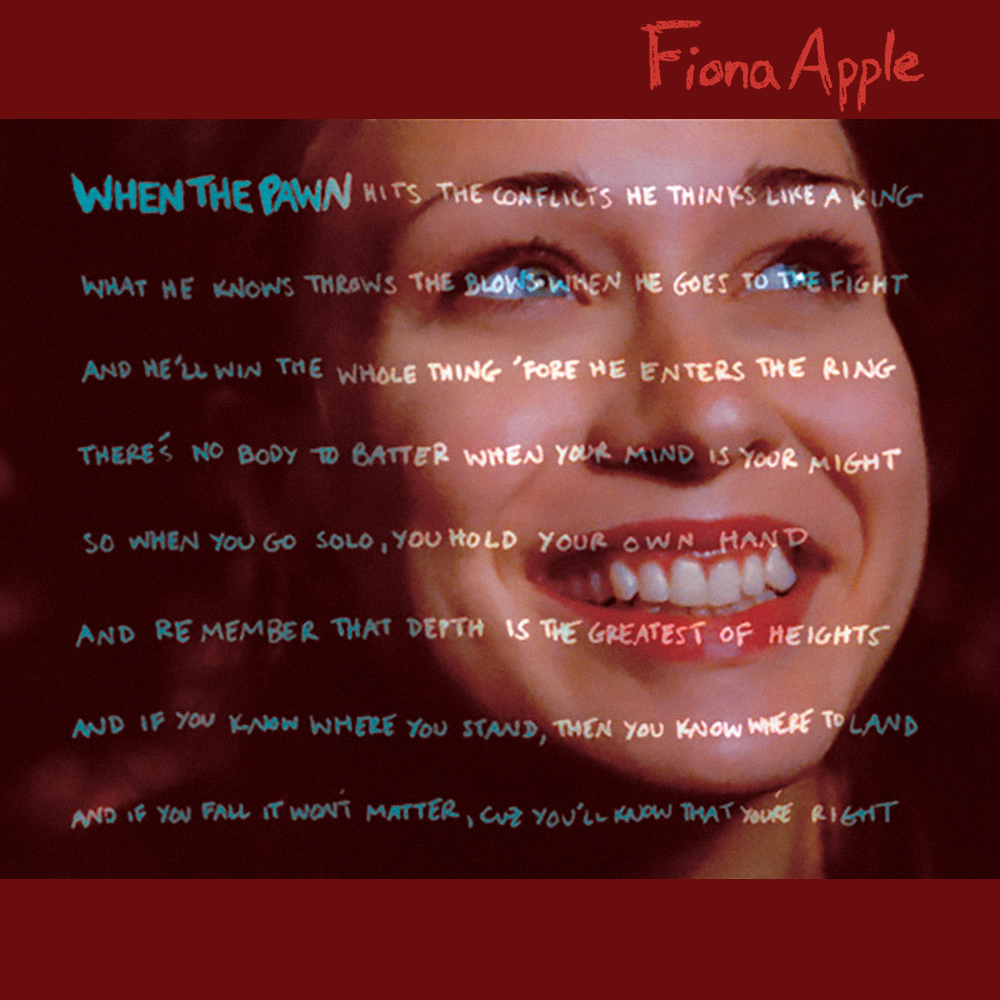 Fiona Apple
WHEN THE PAWN HITS THE CONFLICTS HE THINKS LIKE A KING
WHAT HE KNOWS THROWS THE BLOWS WHEN HE GOES TO THE FIGHT
AND HE'LL WIN THE WHOLE THING 'FORE HE ENTERS THE RING
THERE'S NO BODY TO BATTER WHEN YOUR MIND IS YOUR MIGHT
SO WHEN YOU GO SOLO, YOU HOLD YOUR OWN HAND
AND REMEMBER THAT DEPTH IS THE GREATEST OF HEIGHTS
AND IF YOU KNOW WHERE YOU STAND, THEN YOU KNOW WHERE TO LAND
AND IF YOU FALL IT WON'T MATTER, CUZ YOU'LL KNOW THAT YOU'RE RIGHT